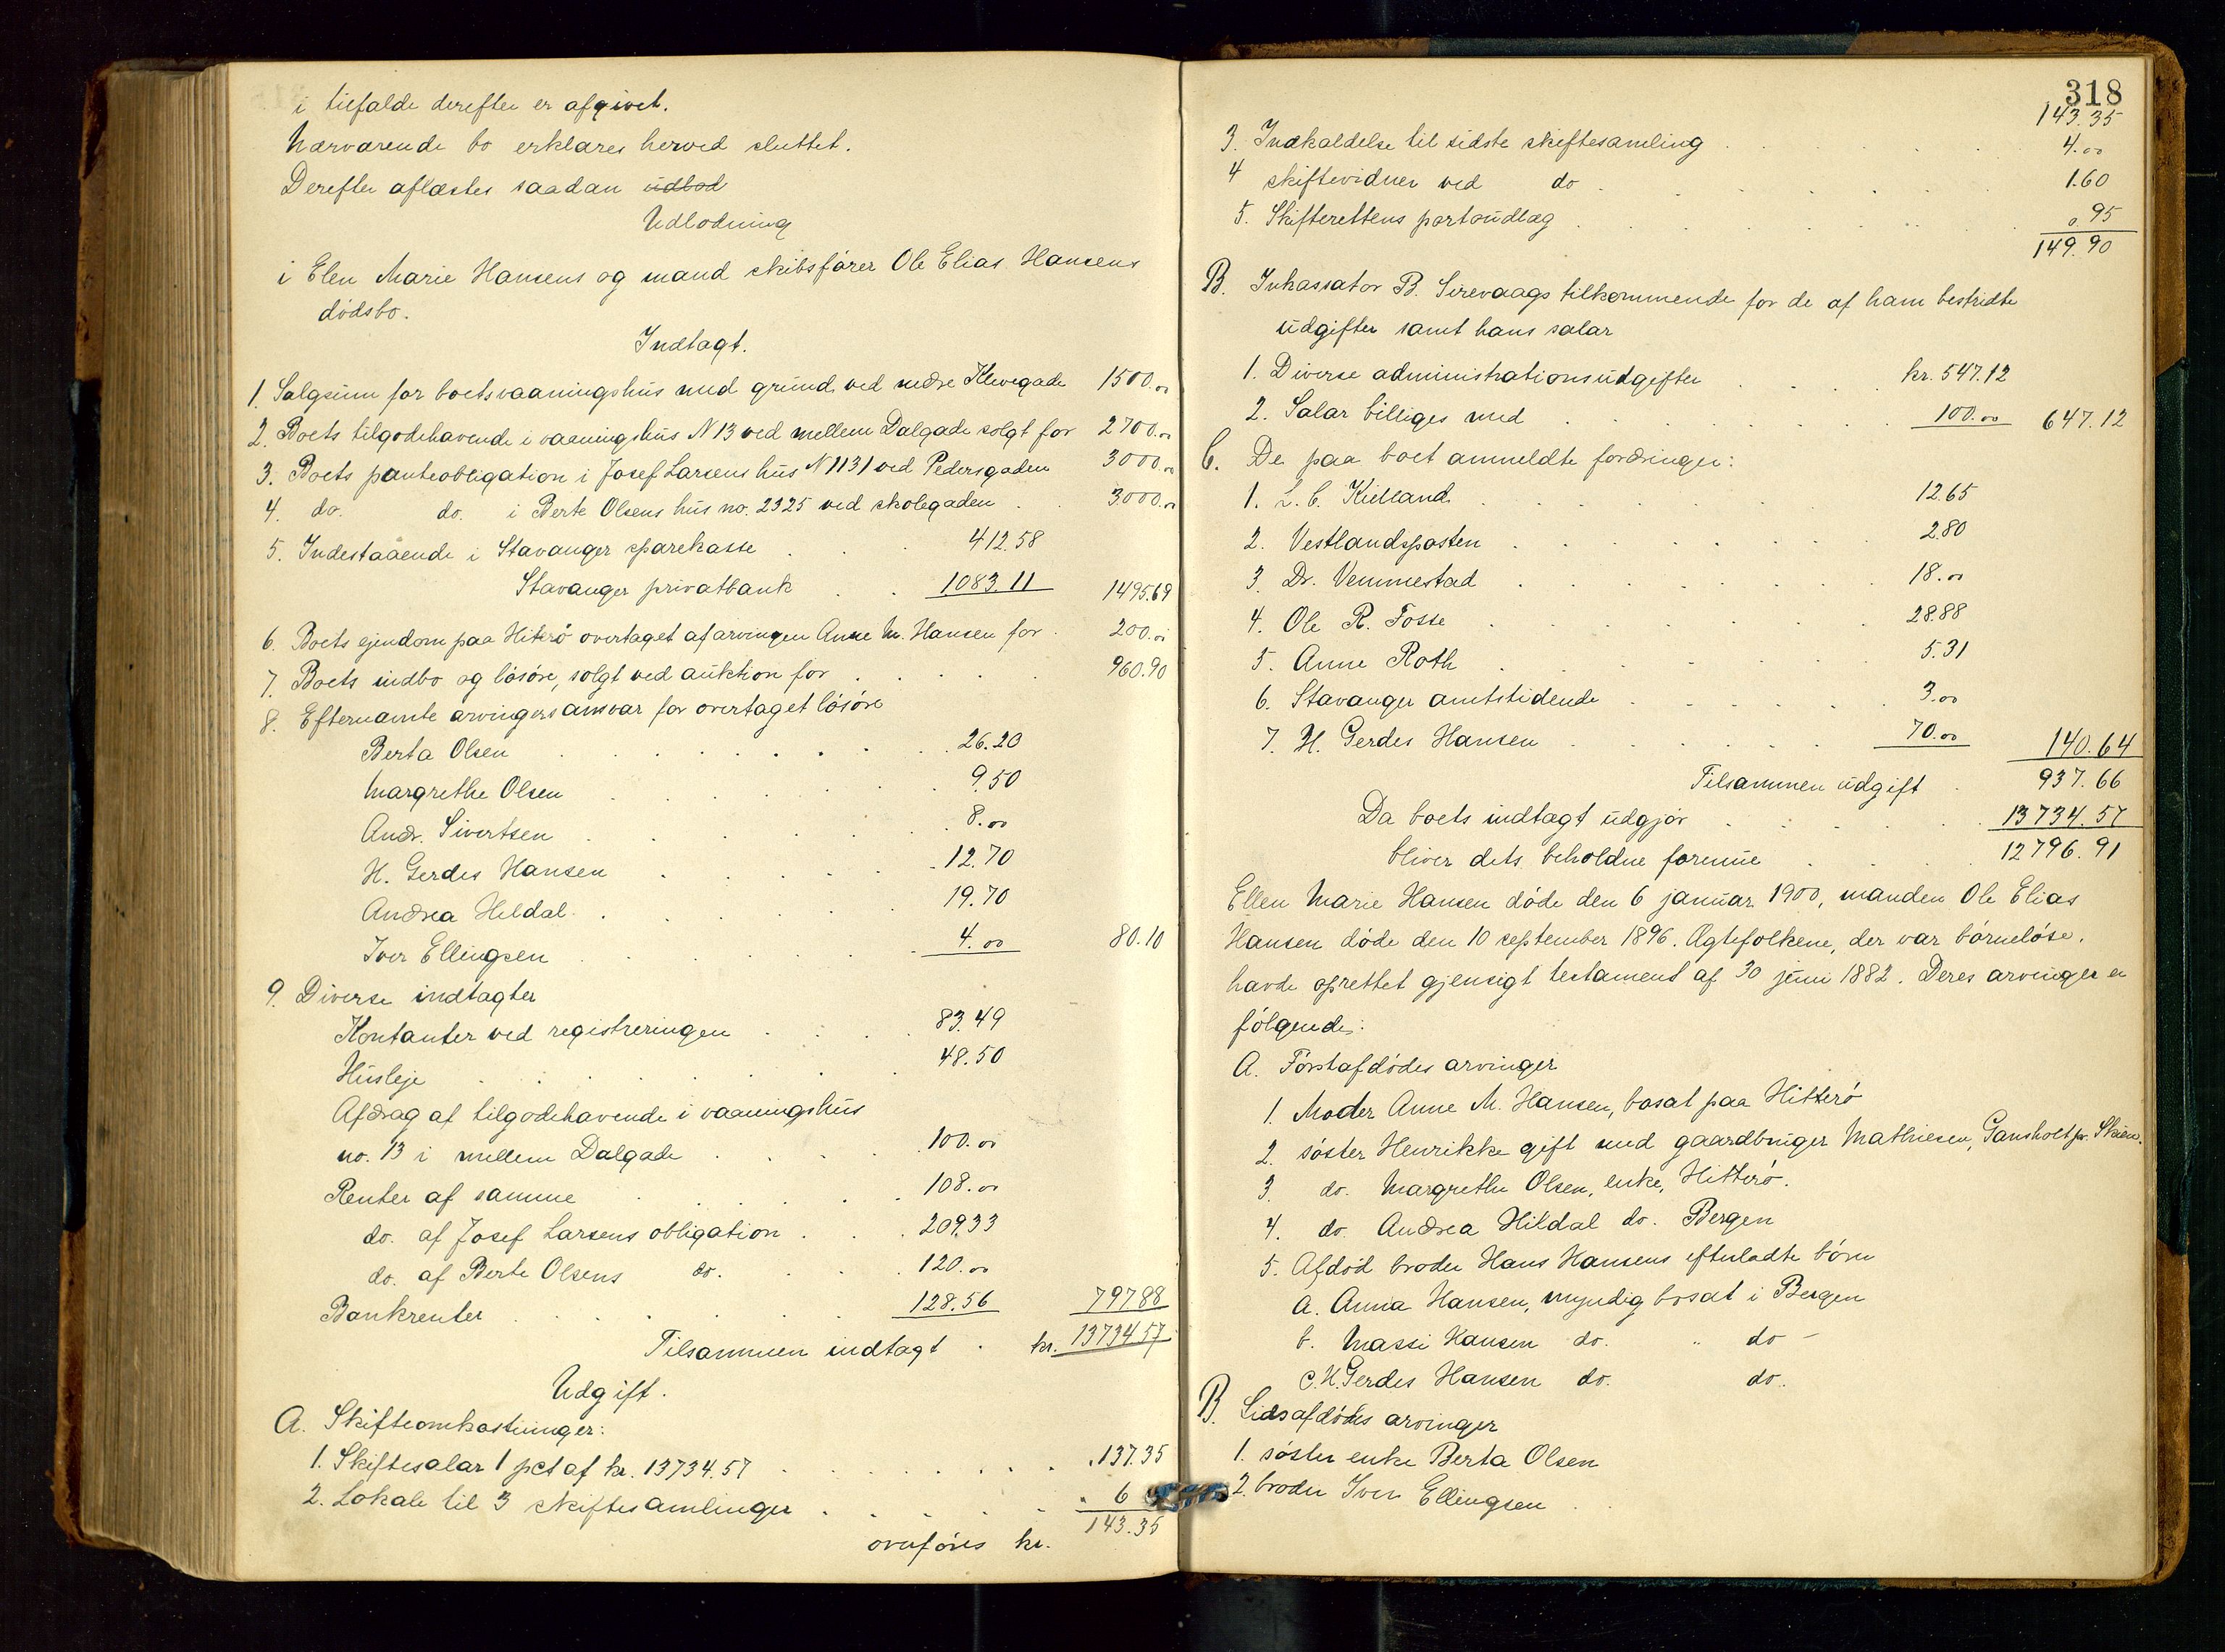 i tilfalde derefter er afgivet.
Nærværende bo erklæres herved sluttet.
Derefter aflæstes saadan udbod
Udlodning
i Elen Marie Hansens og mand skibsfører Ole Elias Hansens
dødsbo.
Indtagt.
1. Salgsum for boets vaaningshus med grund ved nedre Klevegade 1500.00
2. Boets tilgodehavende i vaaningshus N 13 ved mellem Dalgade solgt for 2700.00
3. Boets panteobligation i Josef Larsens hus N 1131 ved Pedersgaden 3000.00
4. do. do. i Berte Olsens hus no. 2325 ved skolegaden . . 3000.00
5. Indestaaende i Stavanger sparekasse . . . 412.58
Stavanger privatbank . . 1083.11 1495.69
6. Boets ejendom paa Hiterø overtaget af arvingen Anne M. Hansen for . 200.00
7. Boets indbo og løsøre, solgt ved auktion for . . . . . 960.90
8. Efternævnte arvingers ansvar for overtaget løsøre
Berta Olsen . . . . . . . 26.20
Margrethe Olsen . . . . . . 9.50
Andr. Sivertsen . . . . . . 8.00
H. Gerdes Hansen . . . . . 12.70
Andrea Hildal . . . . . 19.70
Iver Ellingsen . . . . . . 4.00 80.10
9. Diverse indtagter
Kontanter ved registreringen . . . 83.49
Husleje . . . . . . . . 48.50
Afdrag af tilgodehavende i vaaningshus
no. 13 i mellem Dalgade . . . . 100.00
Renter af samme . . . . . 108.00
do. af Josef Larsens obligation . . . 209.33
do. af Berte Olsens do. . . . 120.00
Bankrenter . . . . . . 128.56 797.88
Tilsammen indtagt . kr. 13734.57
Udgift.
A. Skifteomkostninger:
1. Skiftesalar 1 pct af kr. 13734.57 . . . . . . . 137.35
2. Lokale til 3 skiftesamlinger . . . . . 6
overføres kr. 143.35
318
143.35
3. Indkaldelse til sidste skiftesamling . . . . . . 4.00
4 skiftevidner ved do . . . . . 1.60
5. Skifterettens portoudlæg . . . . . . 0.95
149.90
B. Inkassator B. Sirevaags tilkommende for de af ham bestridte
udgifter samt hans salar
1. Diverse administrationsudgifter . . . kr. 547.12
2. Salar billiges med . . . . . . 100.00 647.12
C. De paa boet anmeldte fordringer:
1. L. C. Kielland . . . . . . 12.65
2. Vestlandsposten . . . . . . 2.80
3. Dr. Vemmestad . . . . . . 18.00
4. Ole R. Fosse . . . . . . 28.88
5. Anne Roth . . . . . . 5.31
6. Stavanger amtstidende . . . . . . 3.00
7. H. Gerdes Hansen . . . . . 70.00 140.64
Tilsammen udgift . 937.66
Da boets indtagt udgjør . . . . . 13734.57
bliver dets beholdne formue . . . . 12796.91
Ellen Marie Hansen døde den 6 januar 1900, manden Ole Elias
Hansen døde den 10 september 1896. Ægtefolkene, der var børneløse,
havde oprettet gjensigt testament af 30 juni 1882. Deres arvinger er
følgende:
A. Førstafdødes arvinger
1. Moder Anne M. Hansen, bosat paa Hitterø
2. søster Henrikke gift med gaardbruger Mathiesen, Gansholt pr. Skien.
3. do. Margrethe Olsen, enke, Hitterø.
4. do. Andrea Hildal do. Bergen
5. Afdød broder Hans Hansens efterladte børn
a. Anna Hansen, myndig bosat i Bergen
b. Massi Hansen do. " do -
c. H. Gerdes Hansen do. do.
B. Sidsafdødes arvinger
1. søster enke Berta Olsen
2. broder Iver Ellingsen